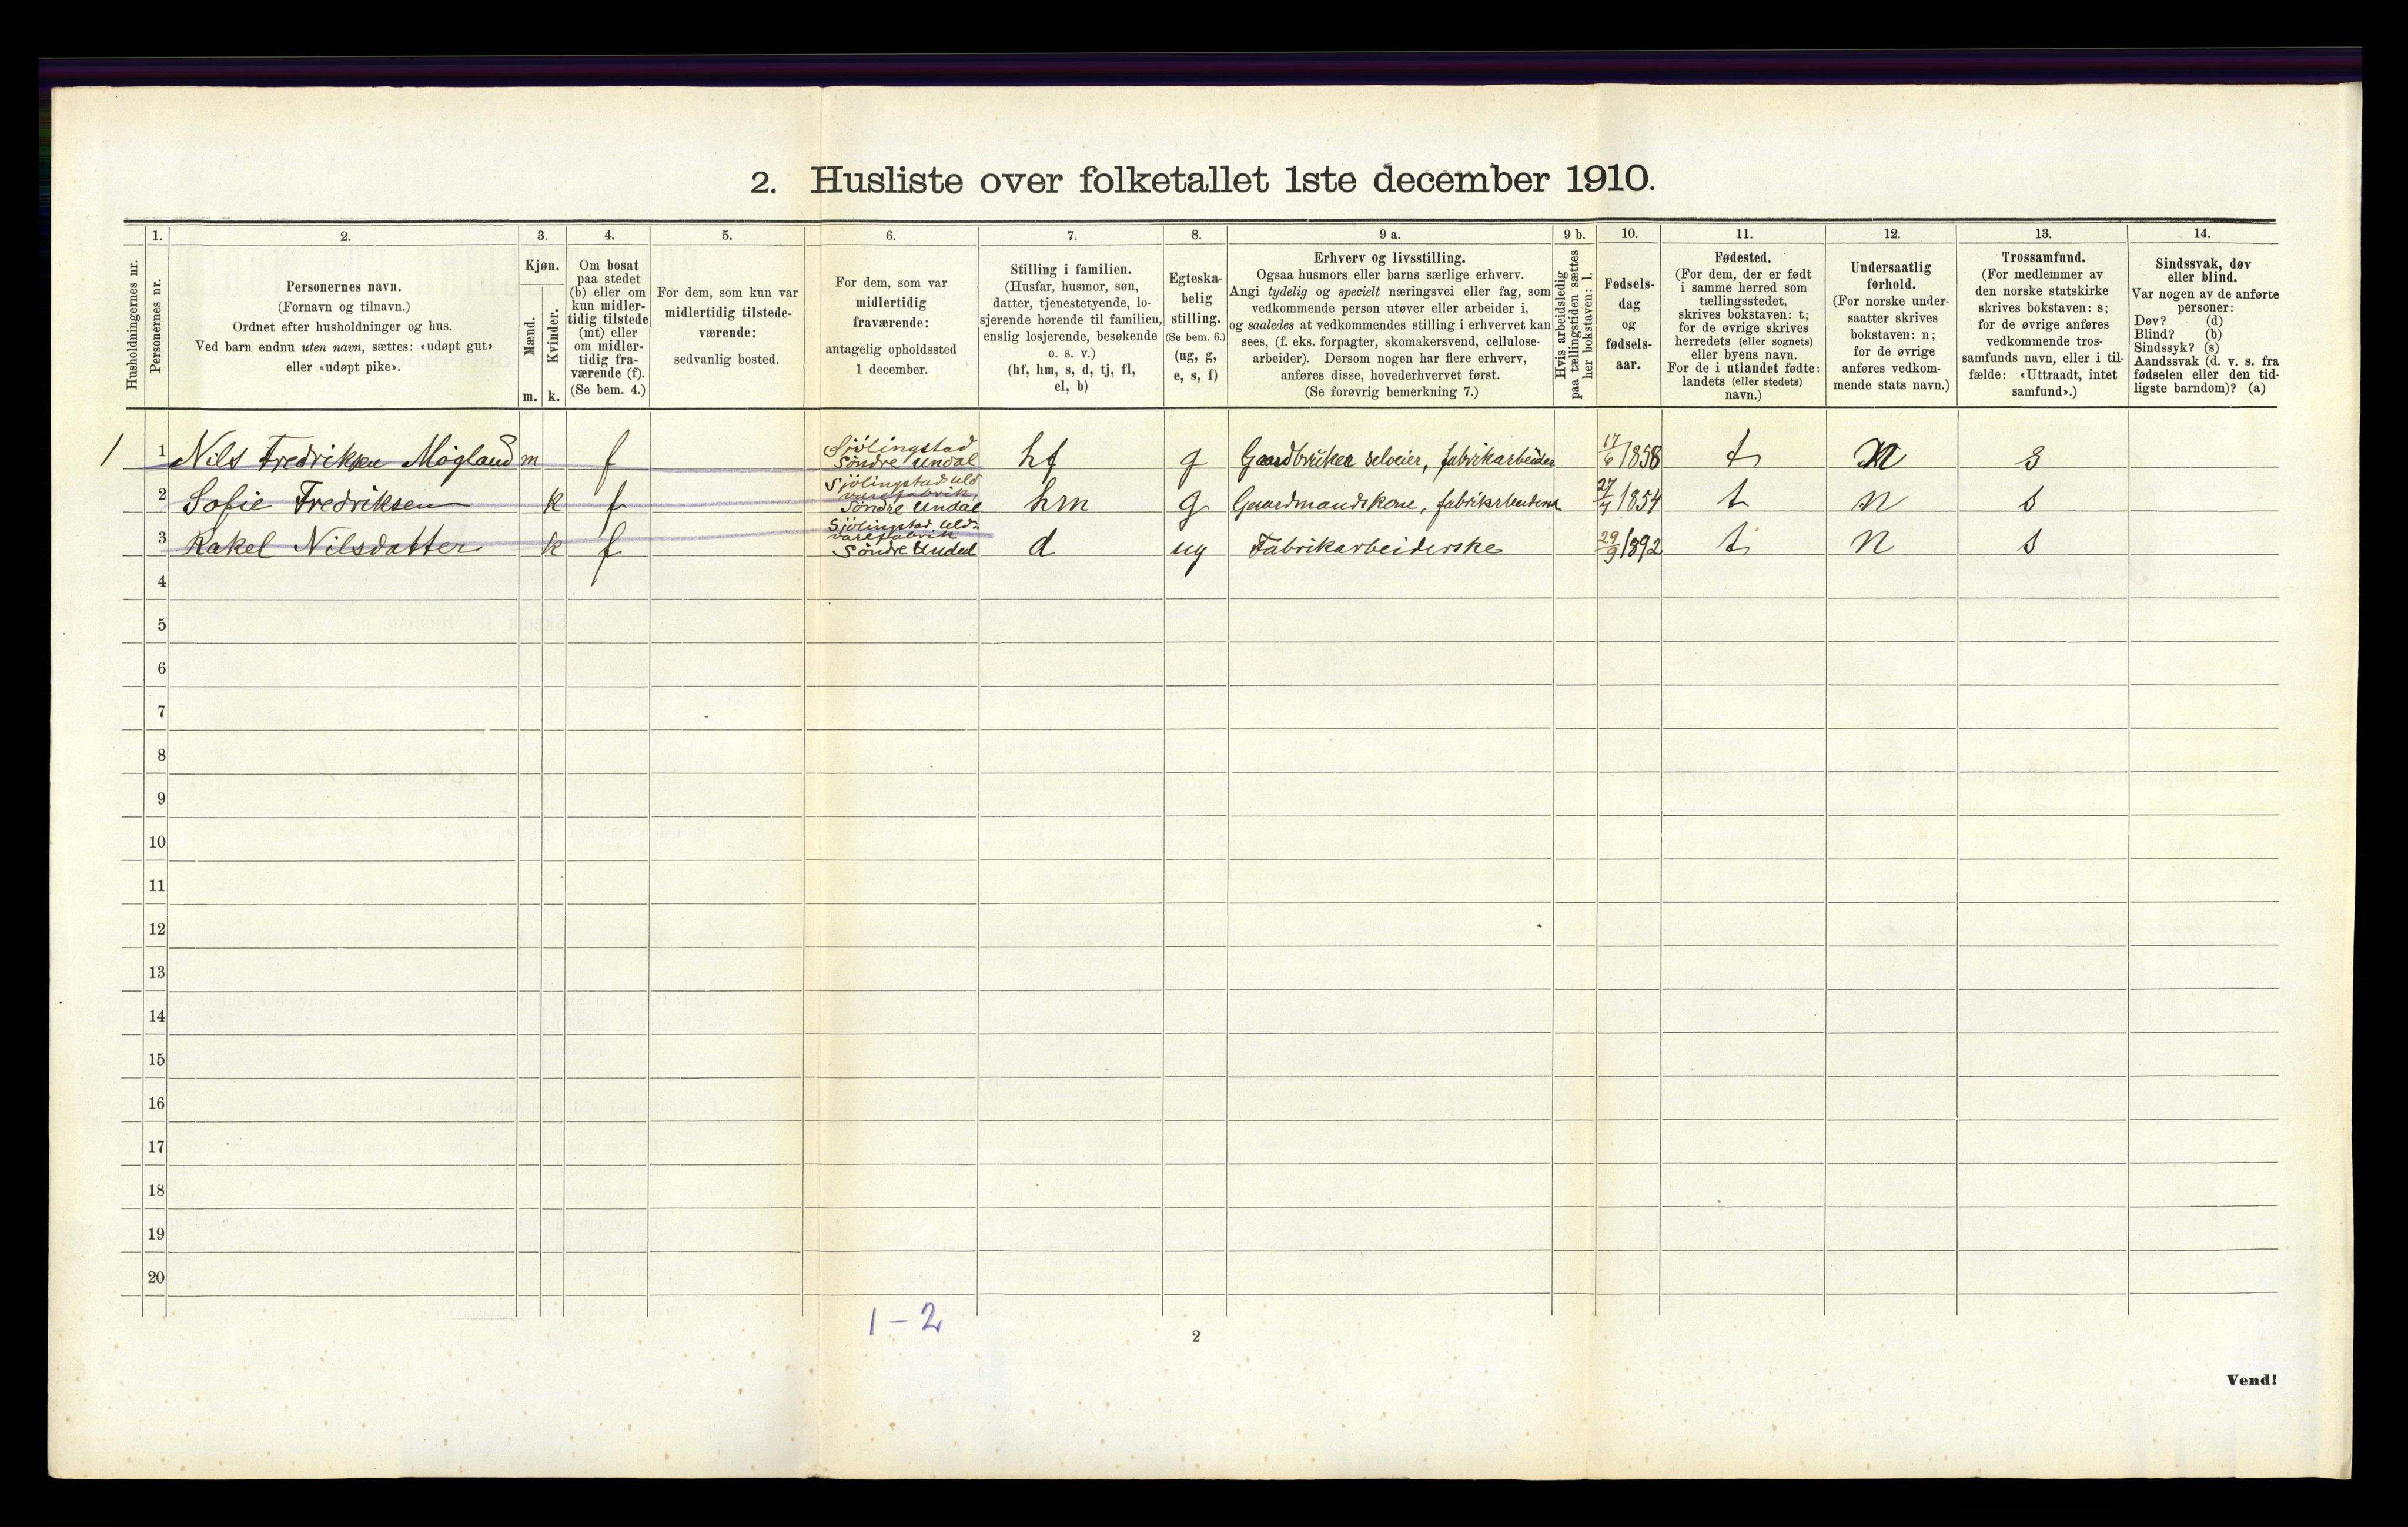 2. Husliste over folketallet 1ste december 1910.
Husholdningernes nr.
1.
Personernes nr.
2.
Personernes navn.
(Fornavn og tilnavn.)
Ordnet efter husholdninger og hus.
Ved barn endnu uten navn, sættes: «udøpt gut»
eller «udøpt pike».
3.
Kjøn.
Mænd.
Kvinder.
m. k.
4.
Om bosat
paa stedet
(b) eller om
kun midler-
tidig tilstede
(mt) eller
om midler-
tidig fra-
værende (f).
(Se bem. 4.)
5.
For dem, som kun var
midlertidig tilstede-
værende:
sedvanlig bosted.
6.
For dem, som var
midlertidig
fraværende:
antagelig opholdssted
1 december.
7.
Stilling i familien.
(Husfar, husmor, søn,
datter, tjenestetyende, lo-
sjerende hørende til familien,
enslig losjerende, besøkende
o. s. v.)
(hf, hm, s, d, tj, fl,
el, b)
8.
Egteska-
belig
stilling.
(Se bem. 6.)
(ug, g,
e, s, f)
9 a.
Erhverv og livsstilling.
Ogsaa husmors eller barns særlige erhverv.
Angi tydelig og specielt næringsvei eller fag, som
vedkommende person utøver eller arbeider i,
og saaledes at vedkommendes stilling i erhvervet kan
sees, (f. eks. forpagter, skomakersvend, cellulose-
arbeider). Dersom nogen har flere erhverv,
anføres disse, hovederhvervet først.
(Se forøvrig bemerkning 7.)
9 b.
Hvis arbeidsledig
paa tællingstiden sættes
her bokstaven: l.
10.
Fødsels-
dag
og
fødsels-
aar.
11.
Fødested.
(For dem, der er født
i samme herred som
tællingsstedet,
skrives bokstaven: t;
for de øvrige skrives
herredets (eller sognets)
eller byens navn.
For de i utlandet fødte:
landets (eller stedets)
navn.)
12.
Undersaatlig
forhold.
(For norske under-
saatter skrives
bokstaven: n;
for de øvrige
anføres vedkom-
mende stats navn.)
13.
Trossamfund.
(For medlemmer av
den norske statskirke
skrives bokstaven: s;
for de øvrige anføres
vedkommende tros-
samfunds navn, eller i til-
fælde: «Uttraadt, intet
samfund».)
14.
Sindssvak, døv
eller blind.
Var nogen av de anførte
personer:
Døv? (d)
Blind? (b)
Sindssyk? (s)
Aandssvak (d. v. s. fra
fødselen eller den tid-
ligste barndom)? (a)
1 1 Nils Fredriksen Møgland m f Sjölingstad Söndre Undal hf g Gaardbruker selveier, fabrikarbeider 17/6 1858 t n s
2 Sofie Fredriksen k f Sjölingstad uld varefabrik, Söndre Undal hm g Gaardmandskone, 27/4 1854 t n s
3 Rakel Nilsdatter k f Sjölingstad uld- varefabrik Söndre Undal d ug Fabrikarbeiderske 29/9 1892 t n s
4
5
6
7
8
9
10
11
12
13
14
15
16
17
18
19
20
1 – 2
2
Vend!